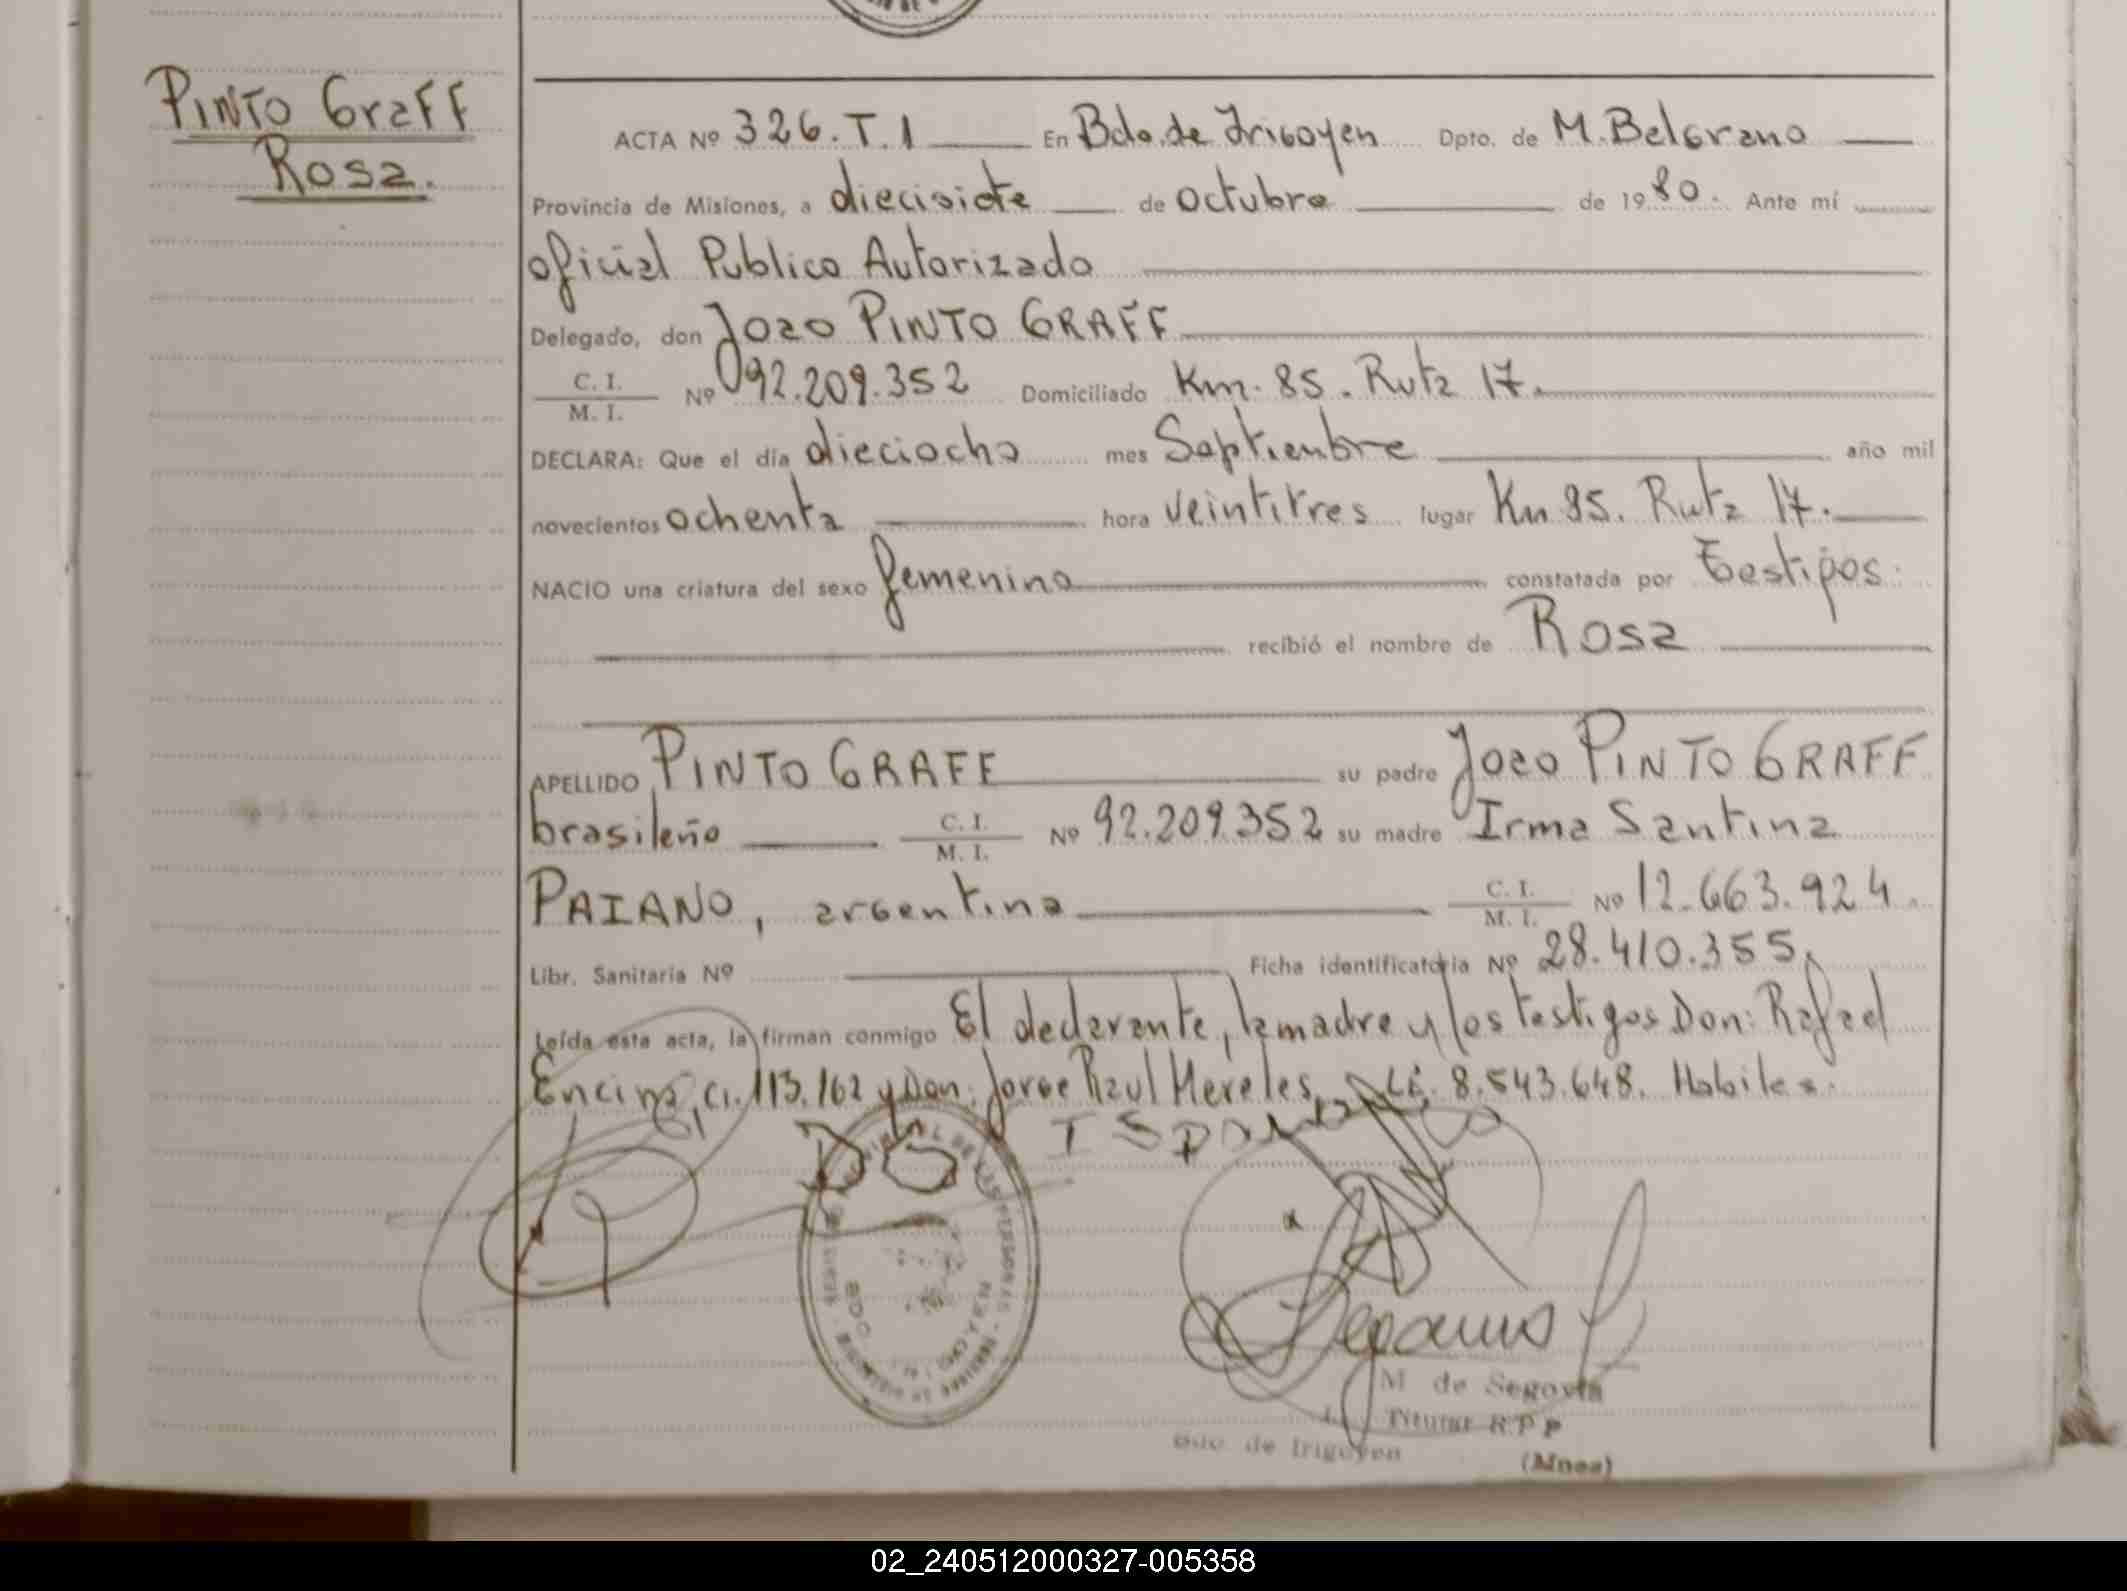 PINTO Graff
Rosa.
ACTA Nº 326.T.1 En Bdo.de Irigoyen Dpto. de M.Belgrano
Provincia de Misiones, a diecisiete de octubre de 1980. Ante mí
oficial Publico Autorizado
Delegado, don Joao PINTO GRAFF
C. I.
M. I. Nº 92.209.352 Domiciliado Km. 85. Ruta 17.
DECLARA: Que el día dieciocho mes Septiembre año mil
novecientos ochenta hora veintitres lugar Km 85. Ruta 17.
NACIO una criatura del sexo femenino constatada por testigos.
recibió el nombre de Rosa
APELLIDO PINTO GRAFF su padre Joao PINTO GRAFF
brasileño C. I. M. I. Nº 92.209.352 su madre Irma Santina
PAIANO, argentina C. I. M. I. Nº 12.663.924
Libr. Sanitaria Nº Ficha identificatoria Nº 28.410.355
Leída esta acta, la firman conmigo El declarante, la madre y los testigos Don: Rafael
Encina, CI. 113.162 y Don: Jorge Raul Mereles, LE. 8.543.648. Habiles.
M de Segovia
Titular R P P
Bdo. de Irigoyen (Mnes)
02_240512000327-005358